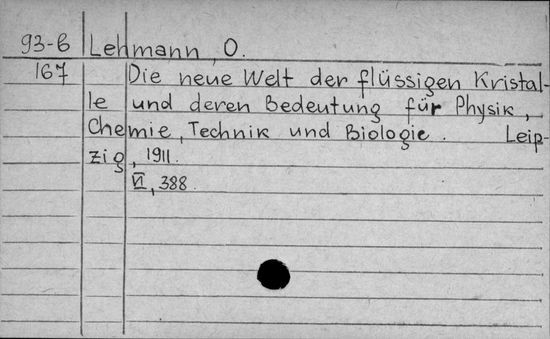 93-6 Lehmann, O.
167 Die neue Welt der flüssigen Kristal-
le und deren Bedeutung für Physik,
Chemie, Technik und Biologie. Leip-
zig, 1911.
VI, 388.